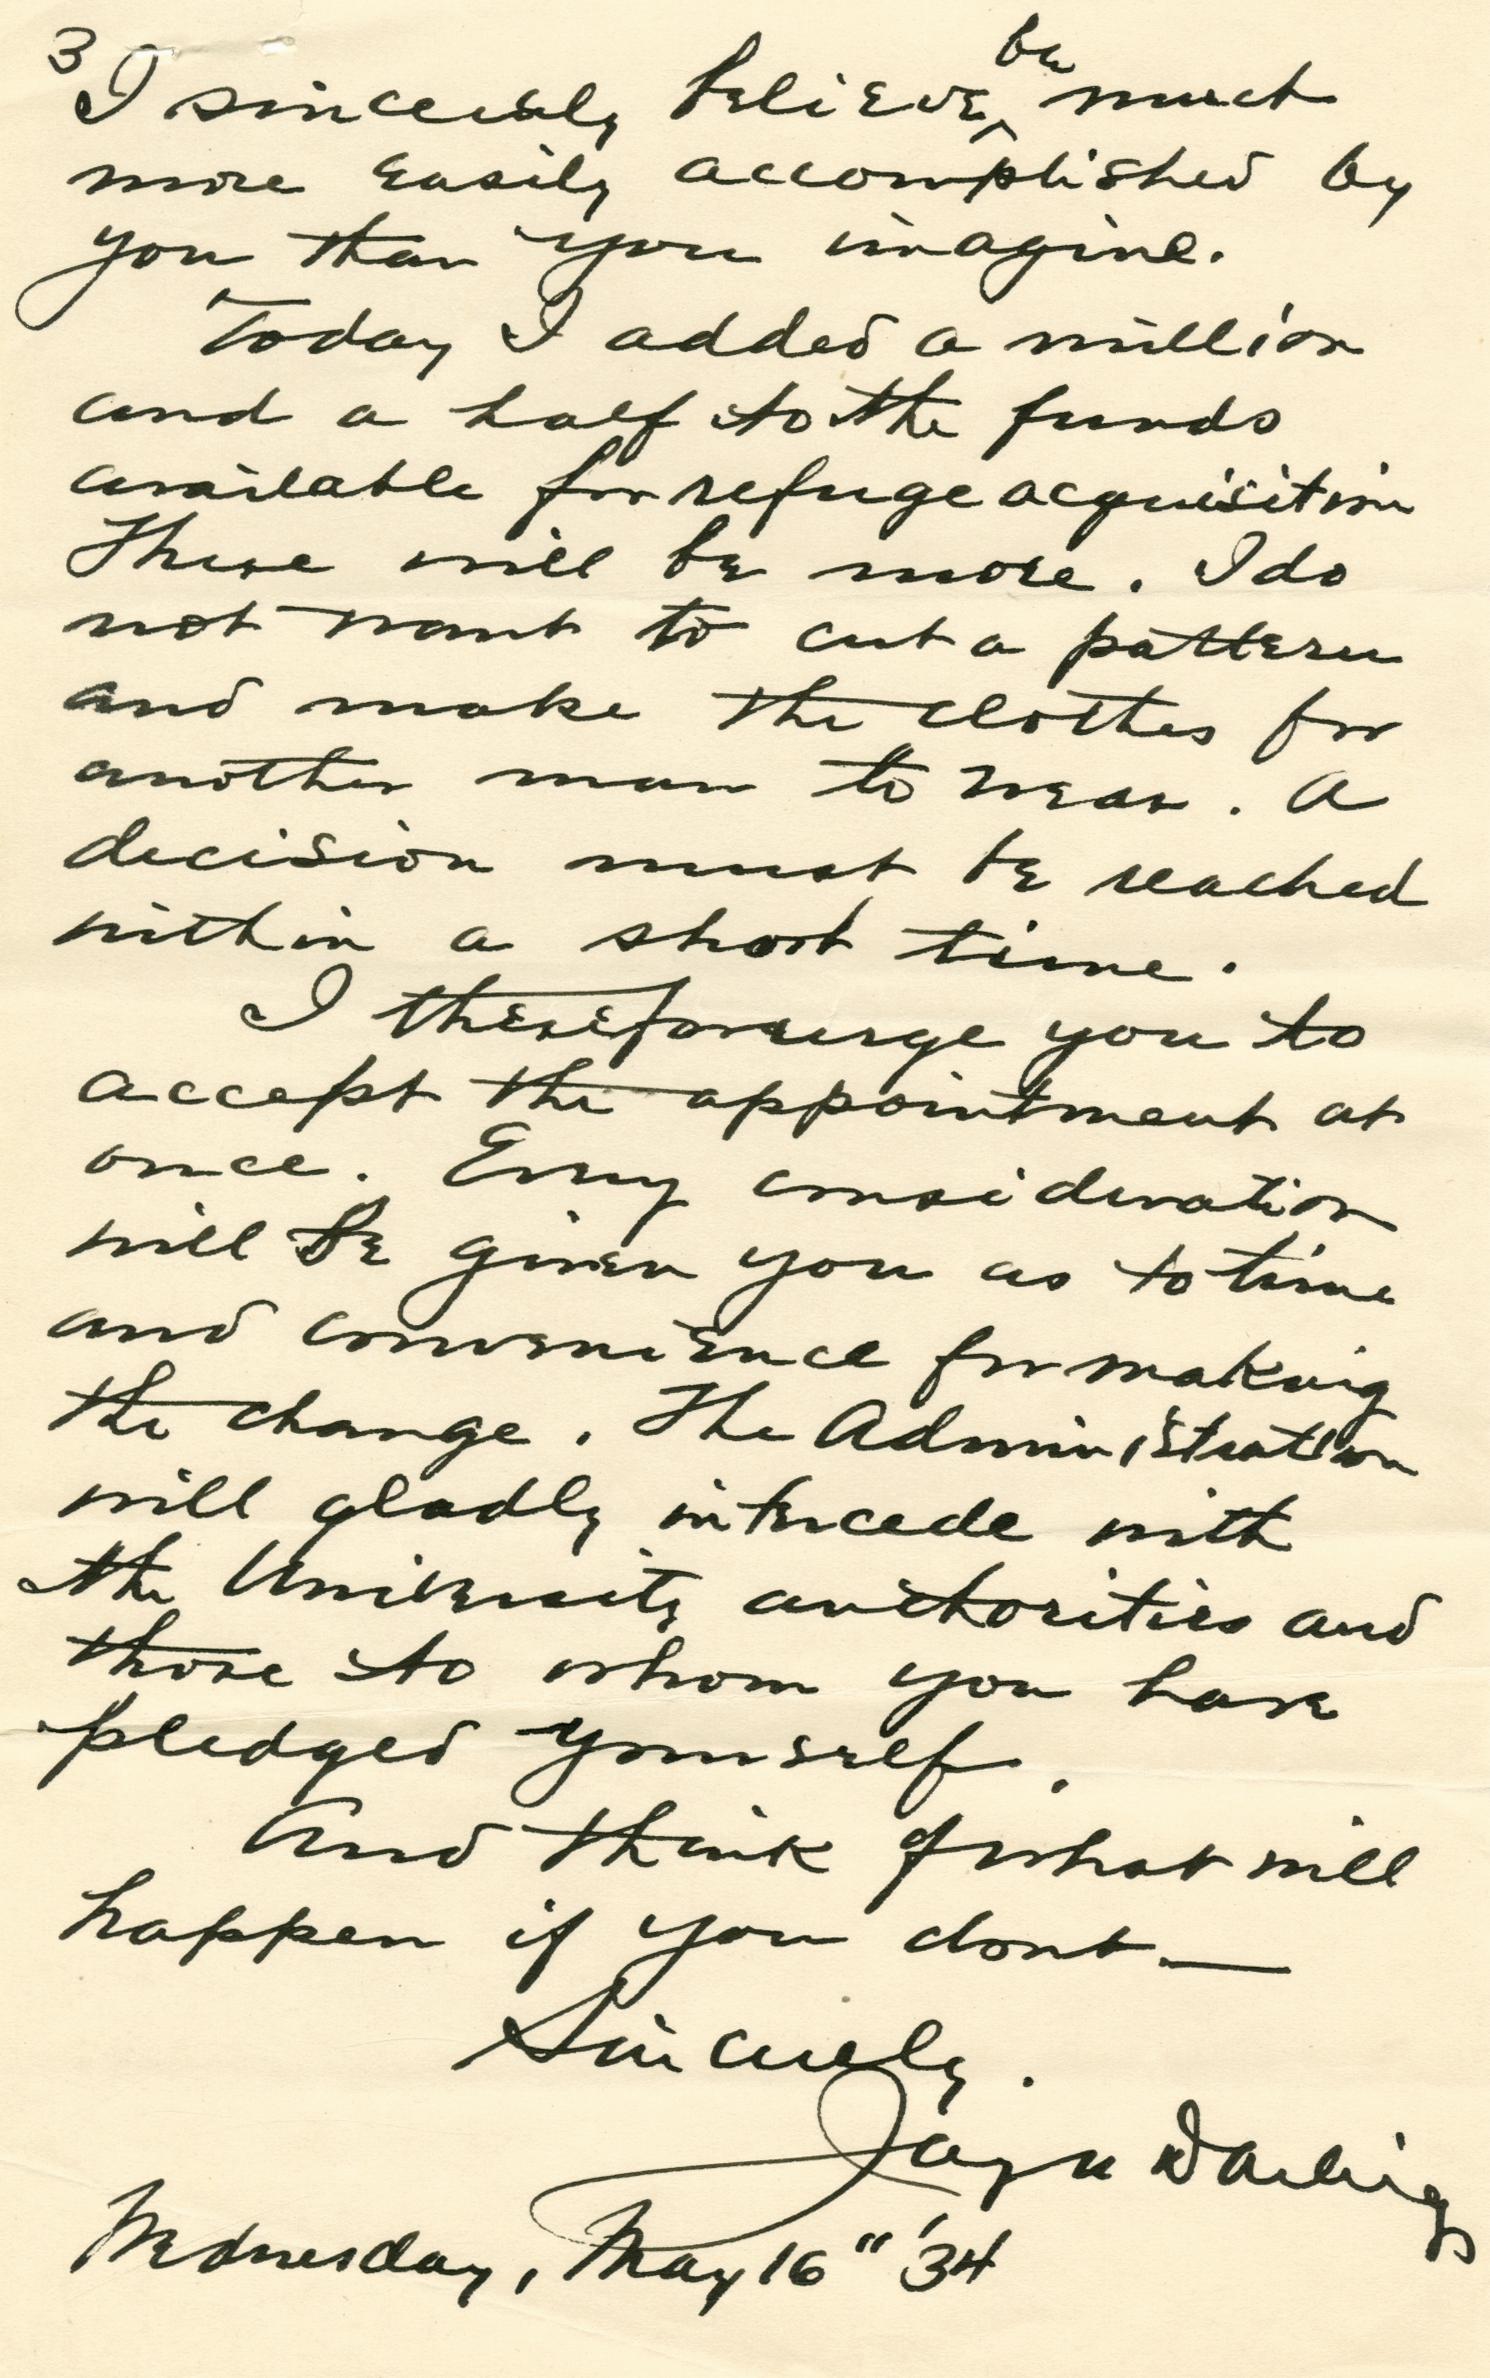 3
I sincerely believe ^be much
more easily accomplished by
you than you imagine.
Today I added a million
and a half to the funds
available for refuge acquisition
There will be more. I do
not want to cut a pattern
and make the clothes for
another man to wear. A
decision must be reached
within a short time.
I therefore urge you to
accept the appointment at
once. Every consideration
will be given you as to time
and convenience for making
the change. The Administration
will gladly intercede with
the University authorities and
those to whom you have
pledged yourself.
And think of what will
happen if you dont—
Sincerely.
Jay N Darling
Wednesday, May 16" '34